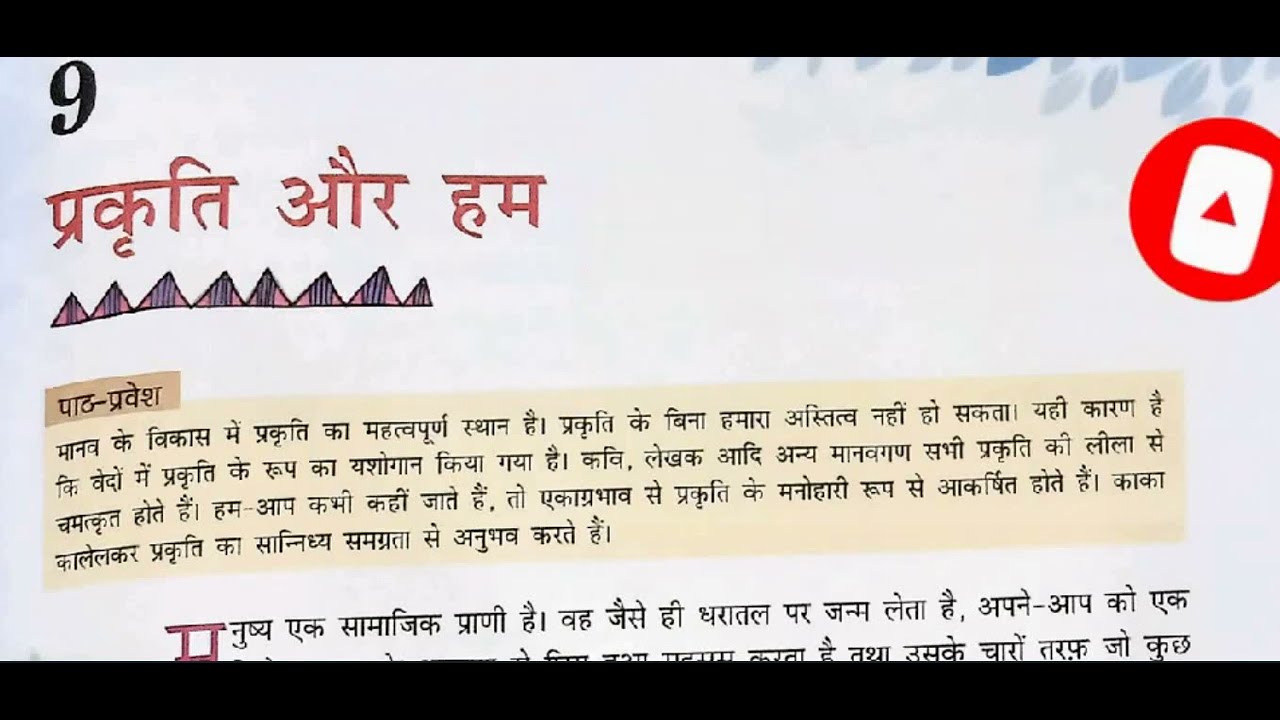 9
प्रकृति और हम
पाठ-प्रवेश
मानव के विकास में प्रकृति का महत्वपूर्ण स्थान है। प्रकृति के बिना हमारा अस्तित्व नहीं हो सकता। यही कारण है
कि वेदों में प्रकृति के रूप का यशोगान किया गया है। कवि, लेखक आदि अन्य मानवगण सभी प्रकृति की लीला से
चमत्कृत होते हैं। हम-आप कभी कहीं जाते हैं, तो एकाग्रभाव से प्रकृति के मनोहारी रूप से आकर्षित होते हैं। काका
कालेलकर प्रकृति का सान्निध्य समग्रता से अनुभव करते हैं।
मनुष्य एक सामाजिक प्राणी है। वह जैसे ही धरातल पर जन्म लेता है, अपने-आप को एक
करता है तथा उसके चारों तरफ़ जो कुछ